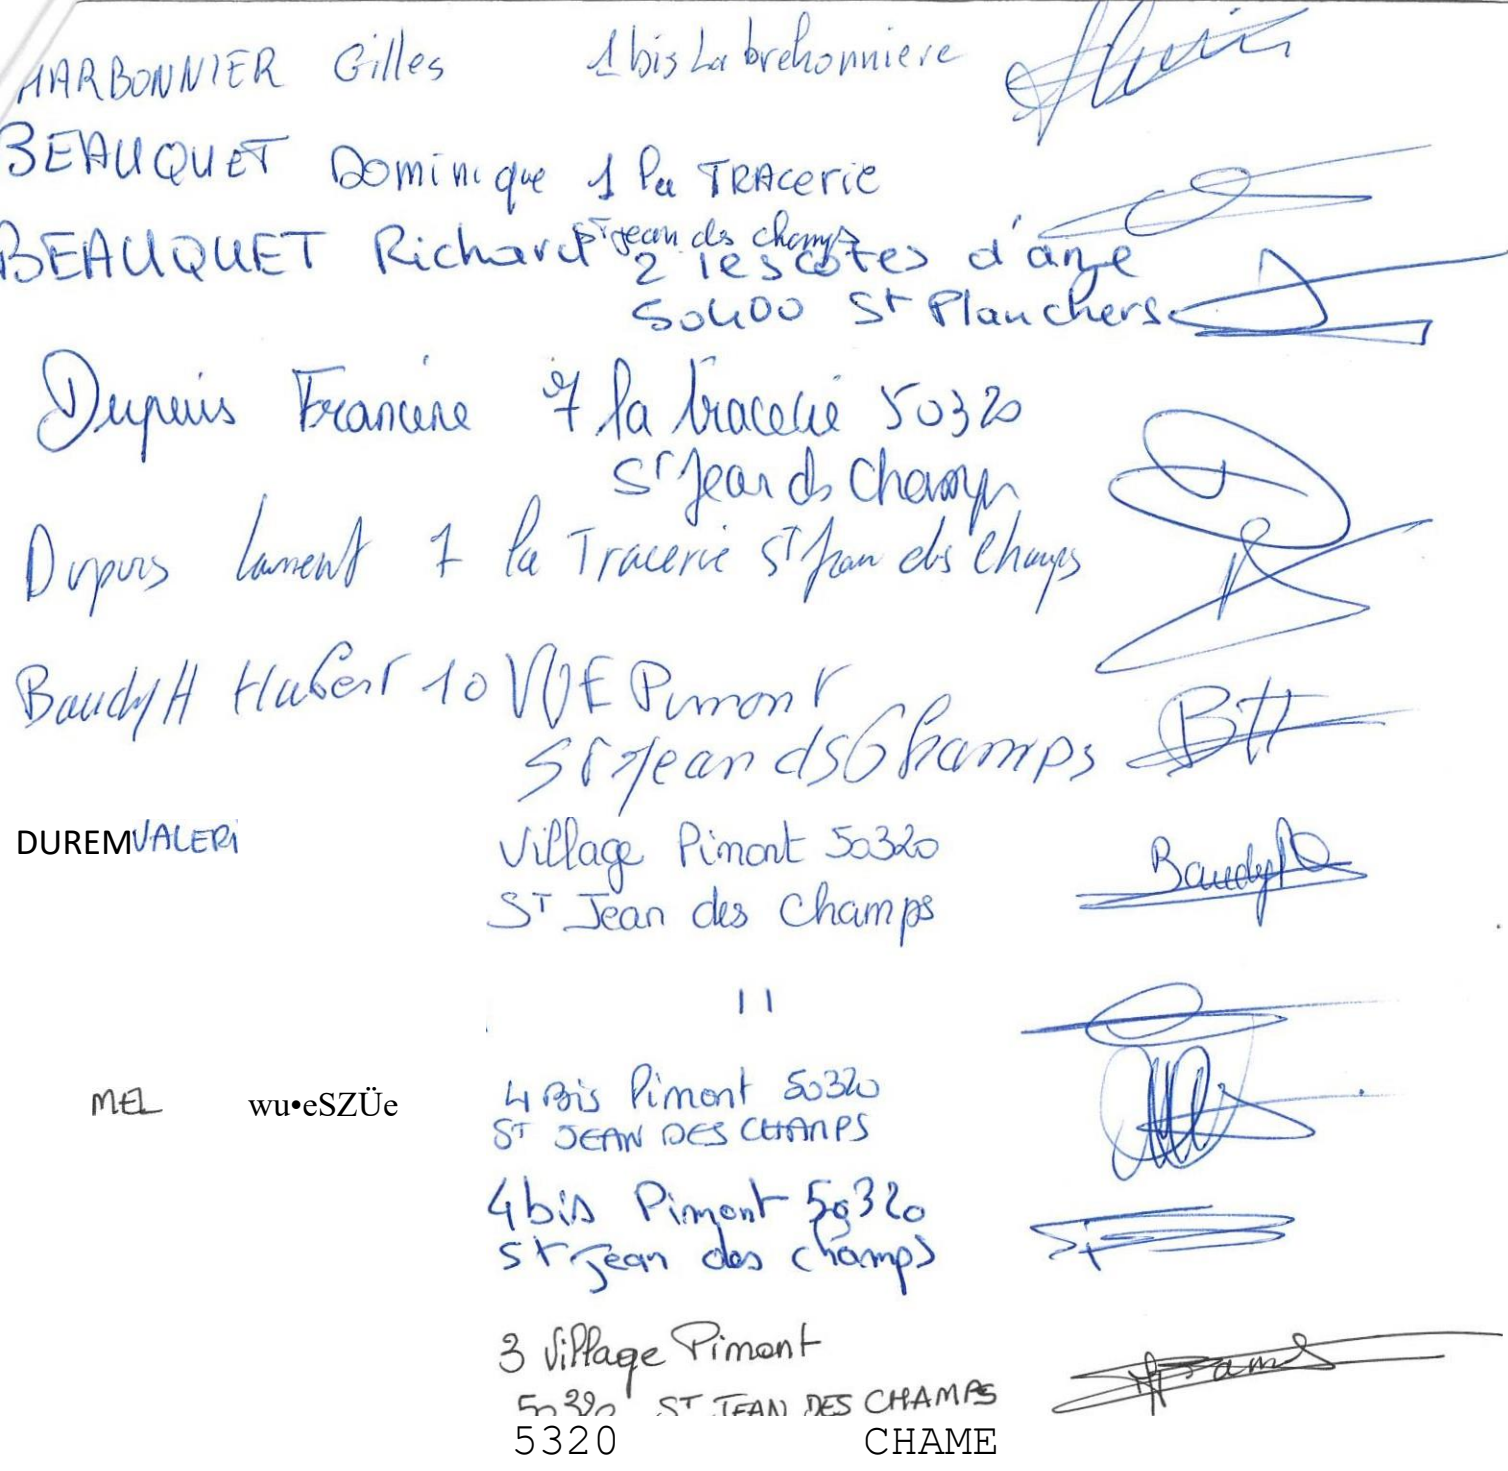 HARBONNIER Gilles 1 bis La brehonniere
BEAUQUET Dominique 1 la TRAcerie
St jean ds champs
BEAUQUET Richard 2 les cotes d'ane
50400 St Planchers
Dupuis Francine 7 la tracerie 50320
St Jean ds Champs
Dupuis Laurent 7 la Tracerie St Jean ds Champs
Baudy H Hubert 10 VGE Pimont
St Jean ds Champs
DUREMVALERi Village Pimont 50320 Baudy
ST Jean des Champs
11
MEL wu•eSZÜe 4 Bis Pimont 50320
ST JEAN DES CHAMPS
4 bis Pimont 50320
St Jean des champs
3 Village Pimont
50320 ST JEAN DES CHAMPS
5320 CHAME